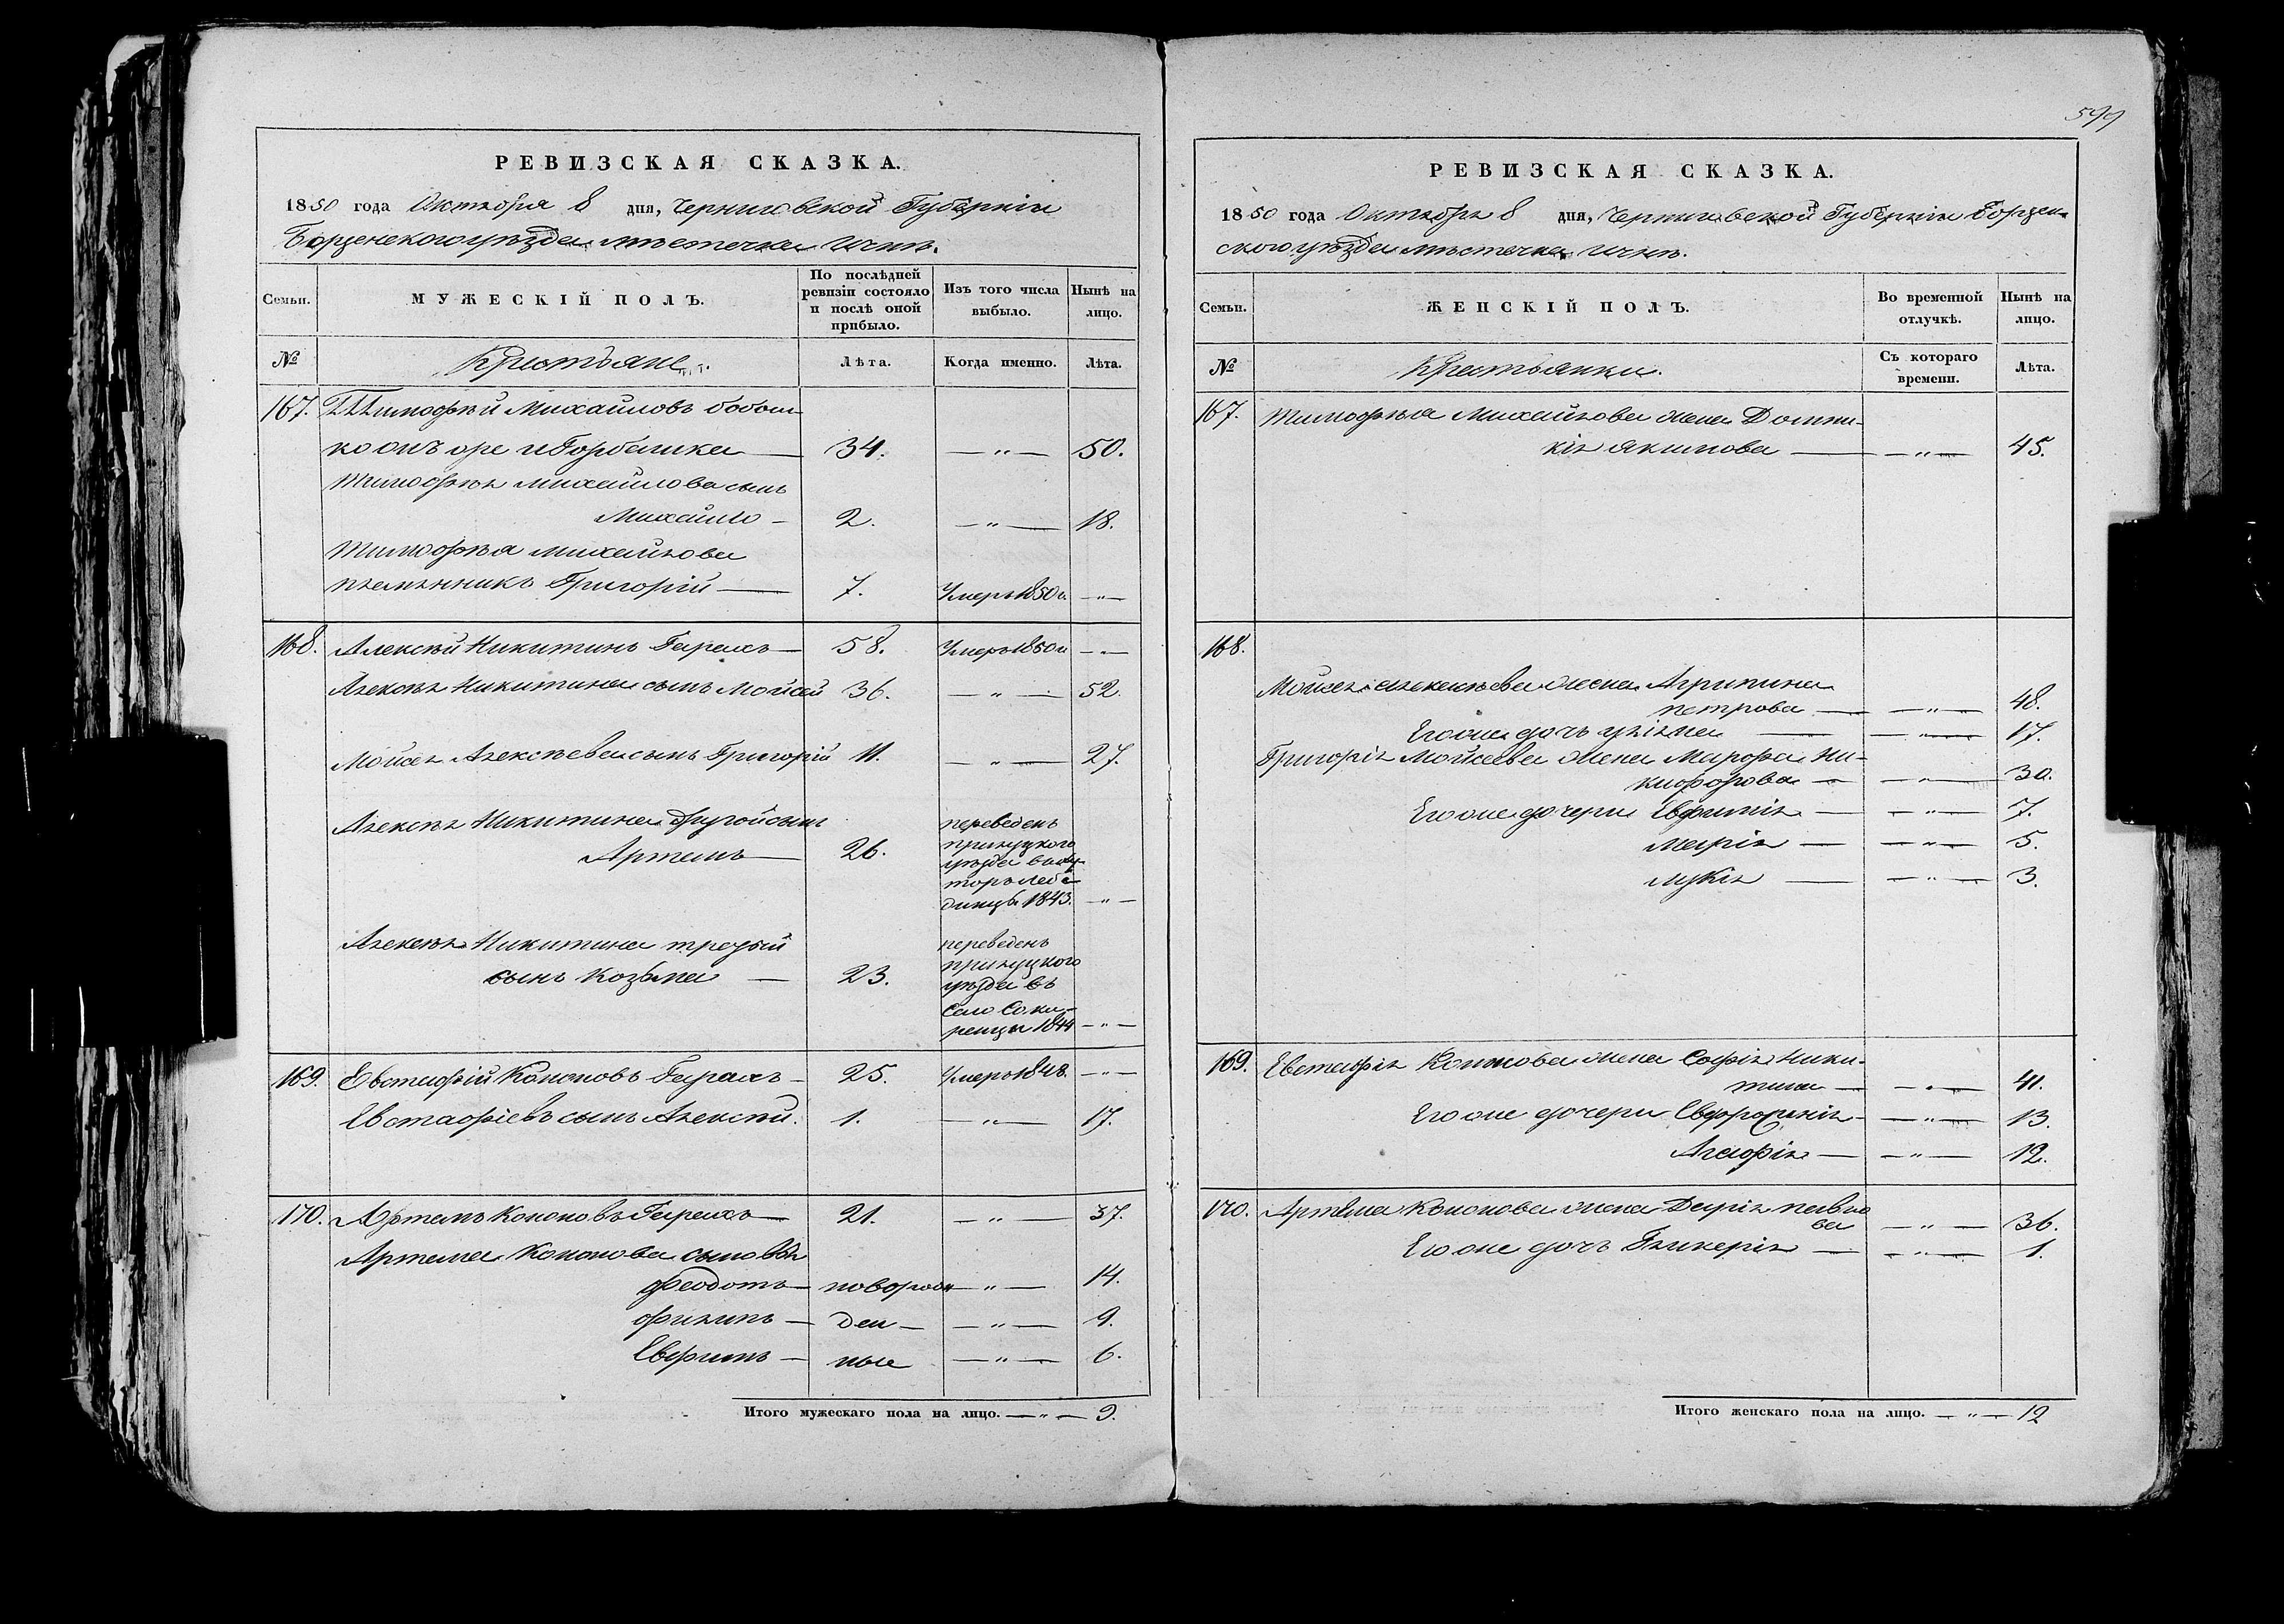 599
РЕВИЗСКАЯ СКАЗКА.
1850 года Октября 8 дня, Черниговской Губерніи
Борзенского уѣзда мѣстечка Ични.
Семьи.
МУЖЕСКІЙ ПОЛЪ.
По послѣдней ревизіи состояло и послѣ оной прибыло.
Изъ того числа выбыло.
Нынѣ на лицо.
№
Крестьяне.
Лѣта.
Когда именно.
Лѣта.
167. Тимофѣй Михайловъ
34. — „ — 50.
Тимофѣя Михайлова сынъ
Михайло — 2. — „ — 18.
Тимофѣя Михайлова
племянникъ Григорій — 7. Умеръ 1850 г. — „ —
168. Алексѣй Никитинъ Гарахъ — 58. Умеръ 1850 г — „ —
Алексѣя Никитина сынъ Мойсей 36. — „ — 52.
Мойсея Алексѣева сынъ Григорій 11. — „ — 27.
Алексѣя Никитина другой сынъ
Артемъ — 26.
переведенъ
прилуцкого
уѣзда въ ху-
торъ Лебе-
динцы 1843. — „ —
Алексѣя Никитина третій
сынъ Козьма — 23.
переведенъ
прилуцкого
уѣзда въ
село Соки-
ренцы 1844 — „ —
169. Евстафій Кононовъ Гарахъ — 25. Умеръ 1848. — „ —
Евстафіевъ сынъ Алексѣй. 1. — „ — 17.
170. Артемъ Кононовъ Гарахъ — 21. — „ — 37.
Артема Кононова сыновья
Феодотъ — новорож — „ — 14.
Филипъ — ден — — „ — 9.
Ефимъ — ные — „ — 6.
Итого мужескаго пола на лицо. — „ — 9.
РЕВИЗСКАЯ СКАЗКА.
1850 года Октября 8 дня, Черниговской Губерніи Борзен-
ского уѣзда мѣстечка Ични.
Семьи.
ЖЕНСКІЙ ПОЛЪ.
Во временной отлучкѣ.
Нынѣ на лицо.
№
Крестьянки.
Съ котораго времени.
Лѣта.
167. Тимофѣя Михайлова жена Домни-
кія Якимова — — „ — 45.
168.
Мойсея Алексѣева жена Агрипина
Петрова — — „ — 48.
Его же дочь Уліяна — — „ — 17.
Григорія Мойсеева жена Марфа Ни-
кифорова — — „ — 30.
Его же дочери Евфимія — — „ — 7.
Марія — — „ — 5.
Лукія — — „ — 3.
169. Евстафія Кононова жена Софія Ники-
тина — — „ — 41.
Его же дочери Евфросинія — — „ — 13.
Агафія — — „ — 12.
170. Артема Кононова жена Дарія Павло
ва — „ — 36.
Его же дочь Гликерія — — „ — 1.
Итого женскаго пола на лицо. — „ — 12